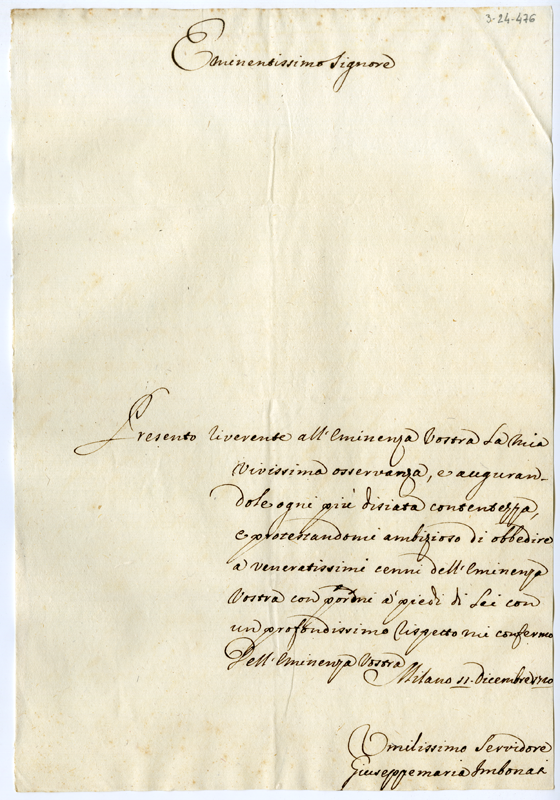 3-24-476
Eminentissimo Signore
Presento riverente all'Eminenza Vostra la mia
vivissima osservanza, e auguran-
dole ogni più disiata contentezza,
e protestandomi ambizioso di obbedire
a veneratissimi cenni dell'Eminenza
Vostra con pormi a' piedi di Lei con
un profondissimo rispetto mi confermo
Dell'Eminenza Vostra
Milano 11. Dicembre
Umilissimo Servidore
Giuseppemaria Imbonati